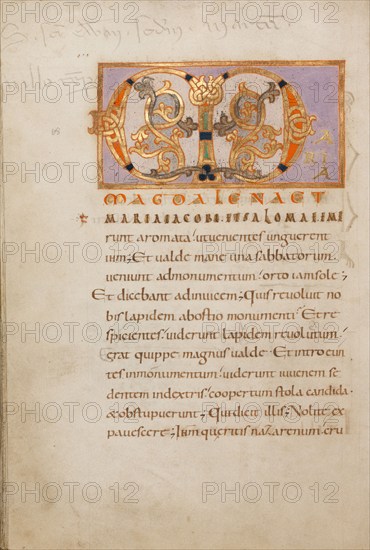 M ARIA
MAGDALENA ET
MARIA IACOBI ET SALOMAE EMI
runt aromata ut uenientes unguerent
eum; Et ualde mane una sabbatorum
ueniunt ad monumentum orto iam sole;
Et dicebant ad inuicem; Quis reuoluit no
bis lapidem ab ostio monumenti Et re
spicientes uiderunt lapidem reuolutum;
erat quippe magnus ualde Et introeun
tes in monumentum uiderunt iuuenem se
dentem in dextris coopertum stola candida
& obstupuerunt; Qui dicit illis; Nolite ex
pauescere; Ihm queritis nazarenum cru
PHOTO 12